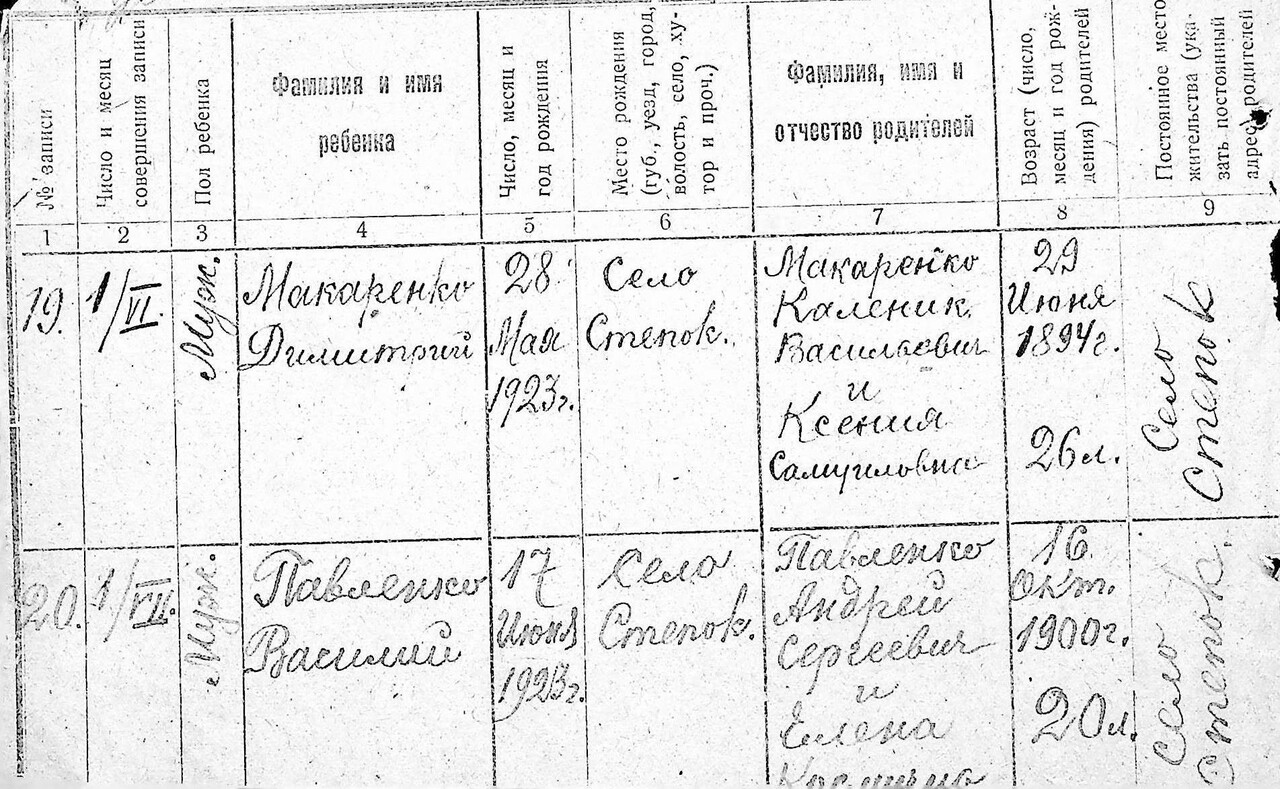 № записи
Число и месяц
совершения записи
Пол ребенка
Фамилия и имя
ребенка
Число, месяц и
год рождения
Место рождения
(губ., уезд, город,
волость, село, ху-
тор и проч.)
Фамилия, имя и
отчество родителей
Возраст (число,
месяц и год рож-
дения) родителей
Постоянное место
жительства (ука-
зать постоянный
адрес родителей
1 2 3 4 5 6 7 8 9
19.
1/VI.
Муж.
Макаренко
Димитрий
28
Мая
1923г.
Село
Степок.
Макаренко
Каленик
Василиевич
и
Ксения
Самуиловна
29
Июня
1894г.
26л.
Село
Степок
20.
1/VII.
Муж.
Павленко
Василий
17
Июня
1923г.
Село
Степок.
Павленко
Андрей
Сергеевич
и
Елена
16
Окт.
1900г.
20л.
Село
Степок.